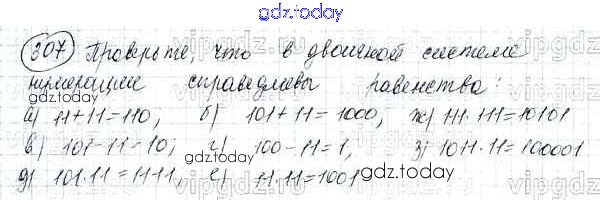 gdz.today
307 Проверьте, что в двоичной системе
нумерации справедливы равенства:
а) 11+11=110; б) 101+11=1000, ж) 111·111=10101
в) 101-11=10; г) 100-11=1, з) 1011·11=100001
д) 101·11=1111, е) 11·11=1001
gdz.today
gdz.today
gdz.today